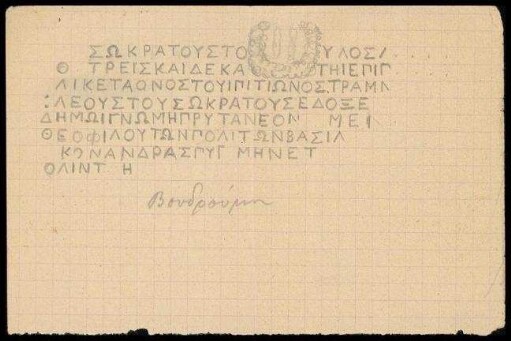 ΣΩΚΡΑΤΟΥΣΤΟ ΥΛΟΣ
Θ ΤΡΕΙΣΚΑΙΔΕΚΑ ΤΗΙΕΠΙΓ
ΛΙΚΕΤΑΟΝΟΣΤΟΥΙΠΤΙΩΝΟΣΤΡΑΜΛ
:ΛΕΟΥΣΤΟΥΣΩΚΡΑΤΟΥΣΕΔΟΞΕ
ΔΗΜΩΙΓΝΩΜΗΠΡΥΤΑΝΕΟΝ ΜΕΙ
ΘΕΟΦΙΛΟΥΤΩΝΠΟΛΙΤΩΝΒΑΣΙΛ
ΚΩΝΑΝΔΡΑΣΓΥΓ ΜΗΝΕΤ
ΟΛΙΝΤ Η
Βουδρούμι